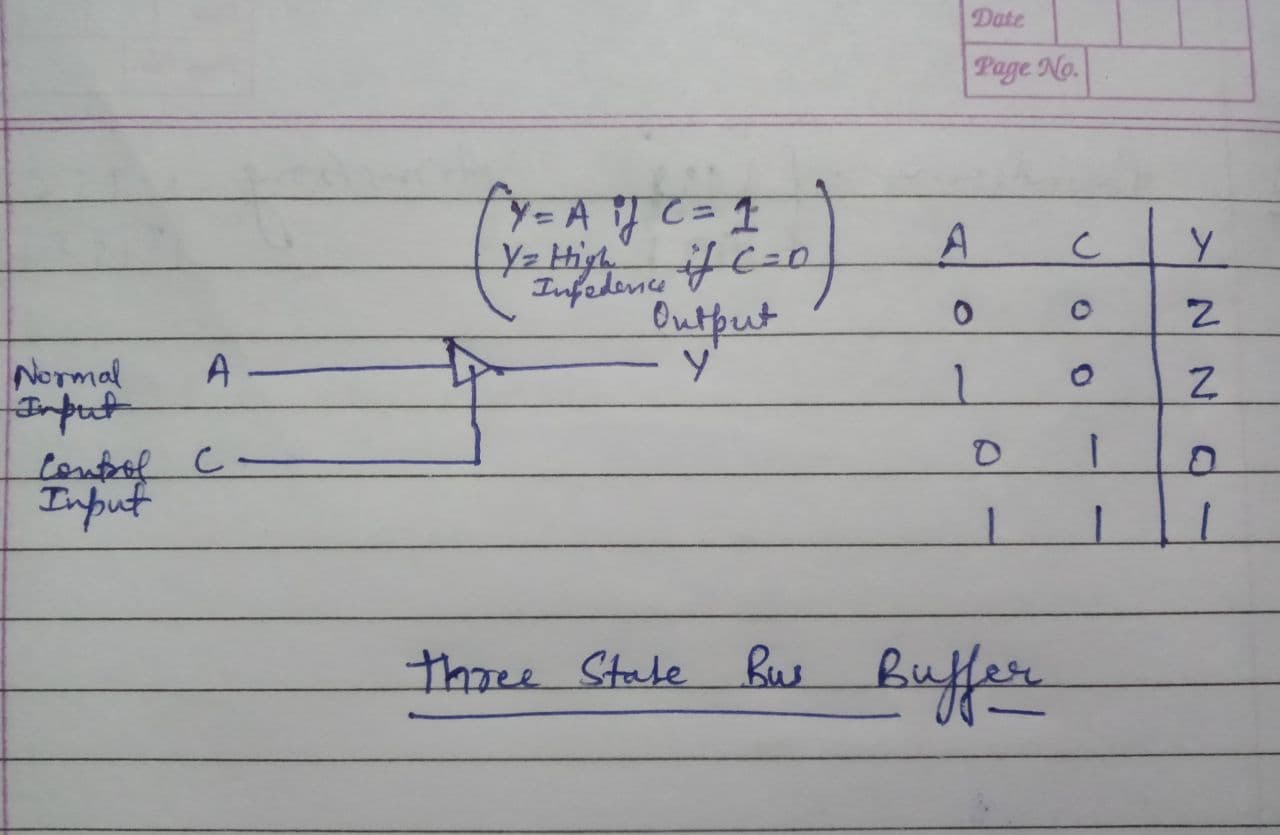 Date
Page No.
Y = A if C = 1
Y = High if C = 0
Infedence
Output
Normal A Y
Input
Control C
Input
A C Y
0 0 Z
1 0 Z
0 1 0
1 1 1
Three State Bus Buffer